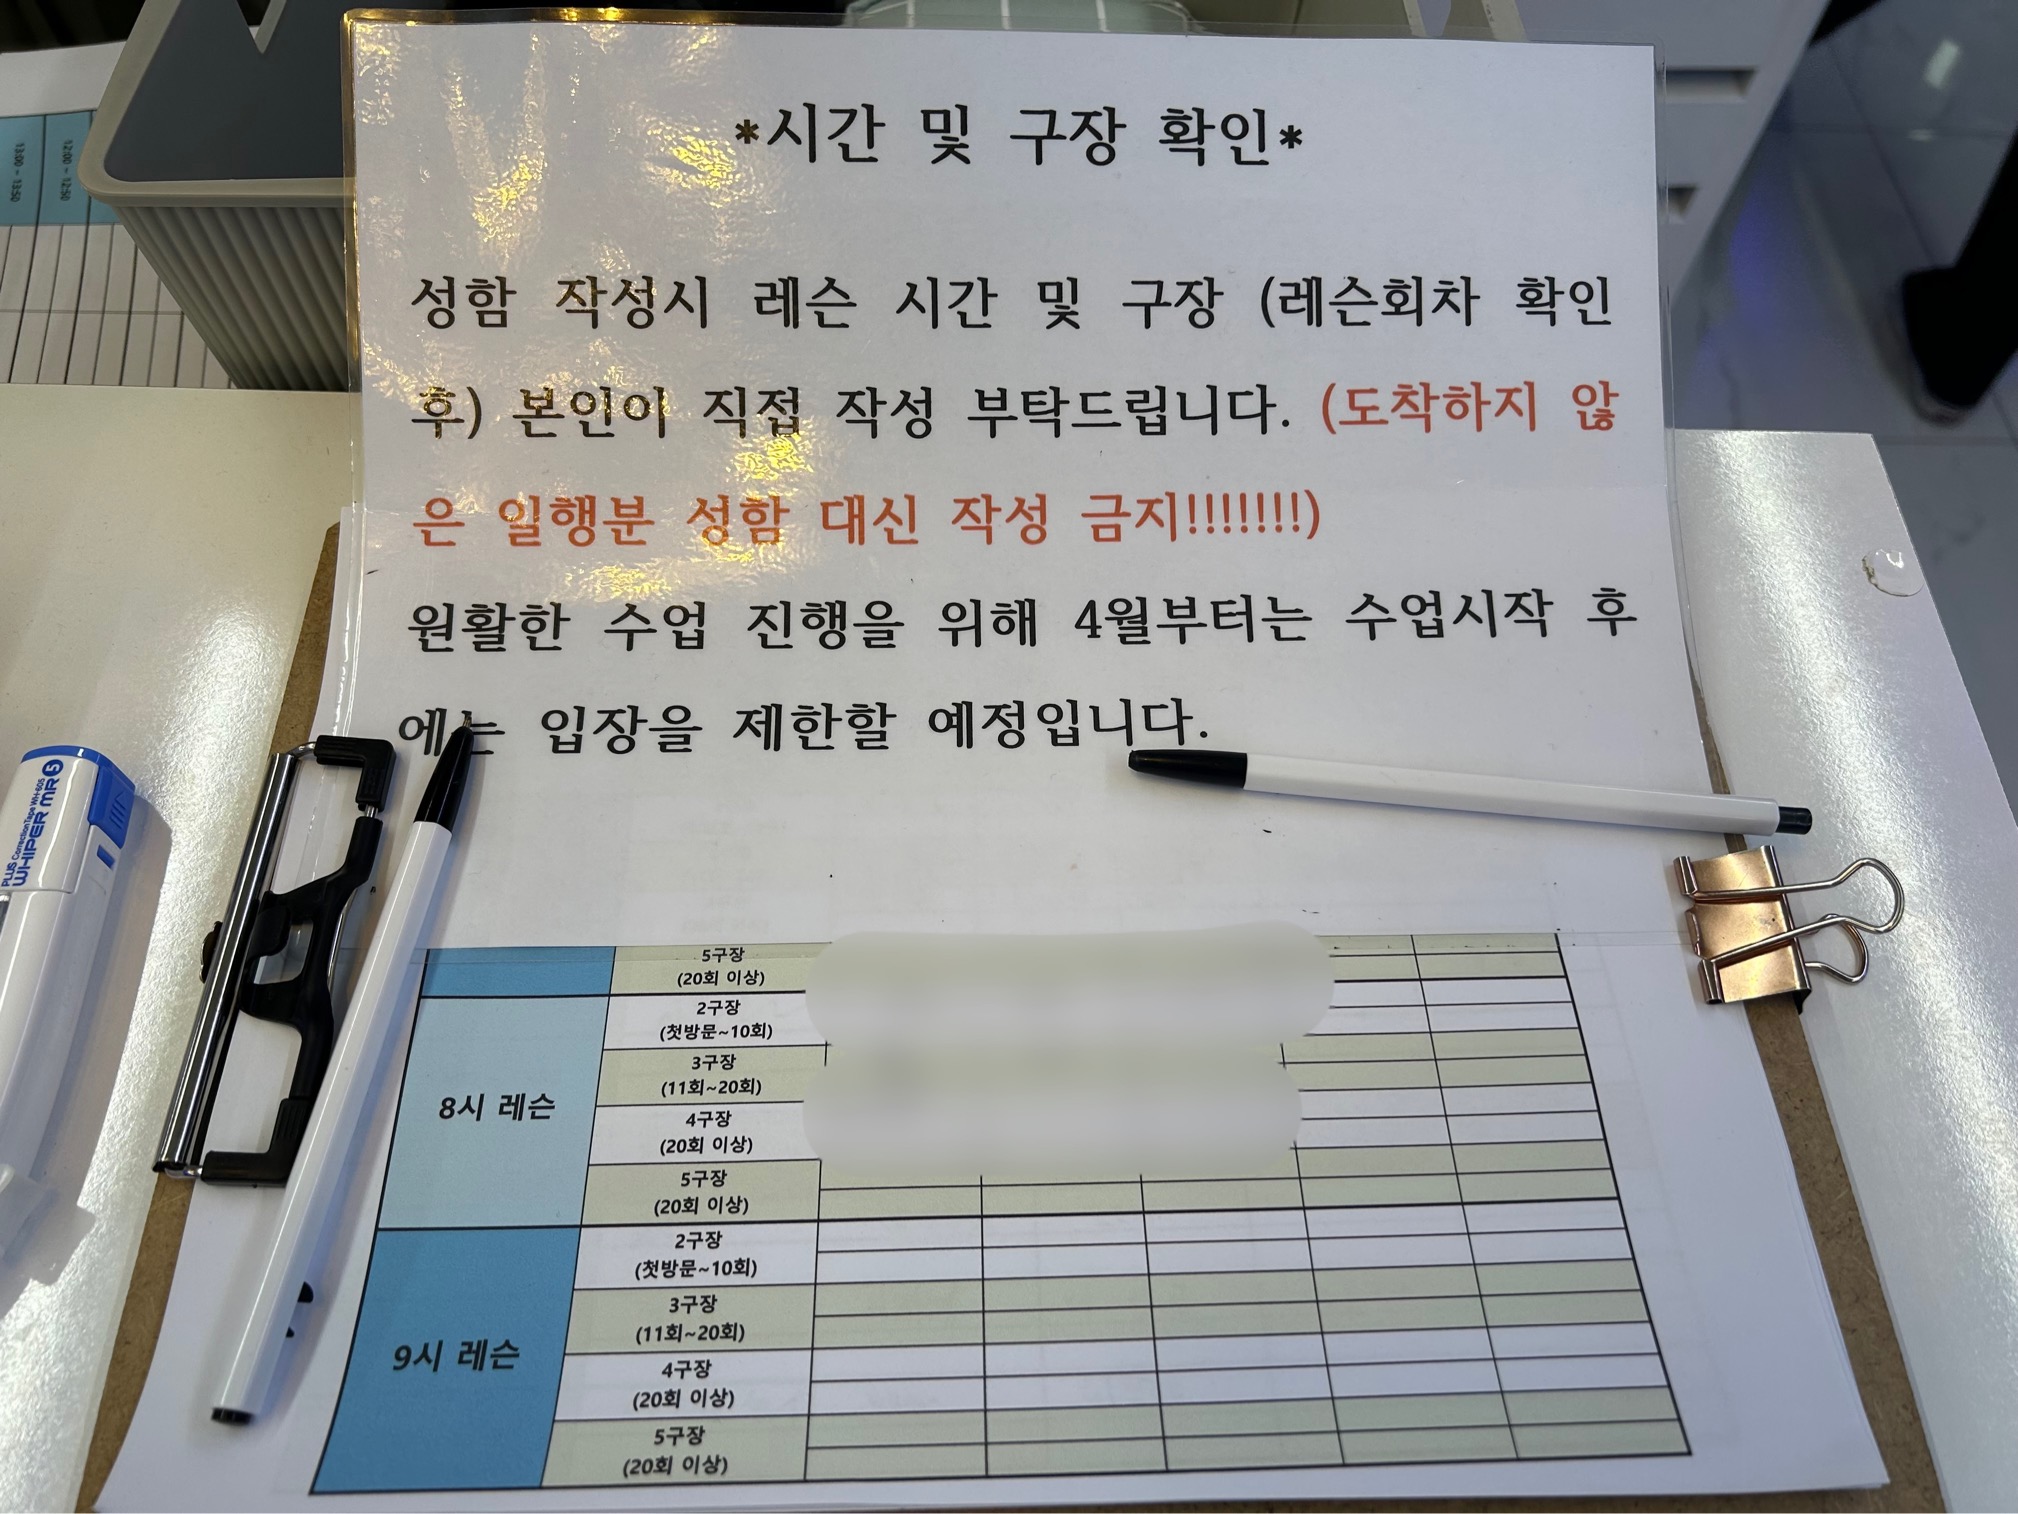 *시간 및 구장 확인*
성함 작성시 레슨 시간 및 구장 (레슨회차 확인
후) 본인이 직접 작성 부탁드립니다. (도착하지 않
은 일행분 성함 대신 작성 금지!!!!!!!)
원활한 수업 진행을 위해 4월부터는 수업시작 후
에는 입장을 제한할 예정입니다.
13:00 ~ 13:50
12:00 ~ 12:50
PLUS Correction Tape WH-605
WHIPER MR 5
5구장
(20회 이상)
8시 레슨
2구장
(첫방문~10회)
3구장
(11회~20회)
4구장
(20회 이상)
5구장
(20회 이상)
9시 레슨
2구장
(첫방문~10회)
3구장
(11회~20회)
4구장
(20회 이상)
5구장
(20회 이상)